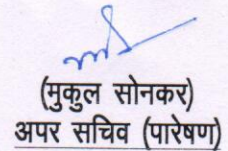 (मुकुल सोनकर)
अपर सचिव (पारेषण)